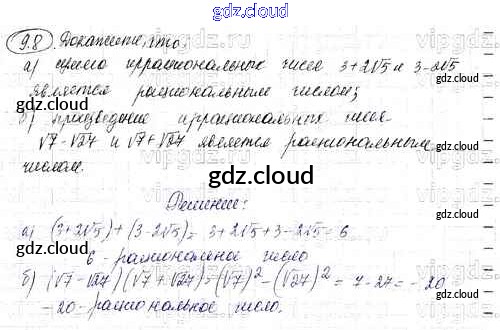 gdz.cloud
9.8 Докажите, что:
а) сумма иррациональных чисел 3+2√5 и 3-2√5
является рациональным числом;
б) произведение иррациональных чисел
√7-√27 и √7+√27 является рациональным
числом.
gdz.cloud
Решение:
а) (3+2√5)+(3-2√5)= 3+2√5+3-2√5=6
6 - рациональное число
б) (√7-√27)(√7+√27)=(√7)²-(√27)²= 7-27=-20
-20-рациональное число.
gdz.cloud